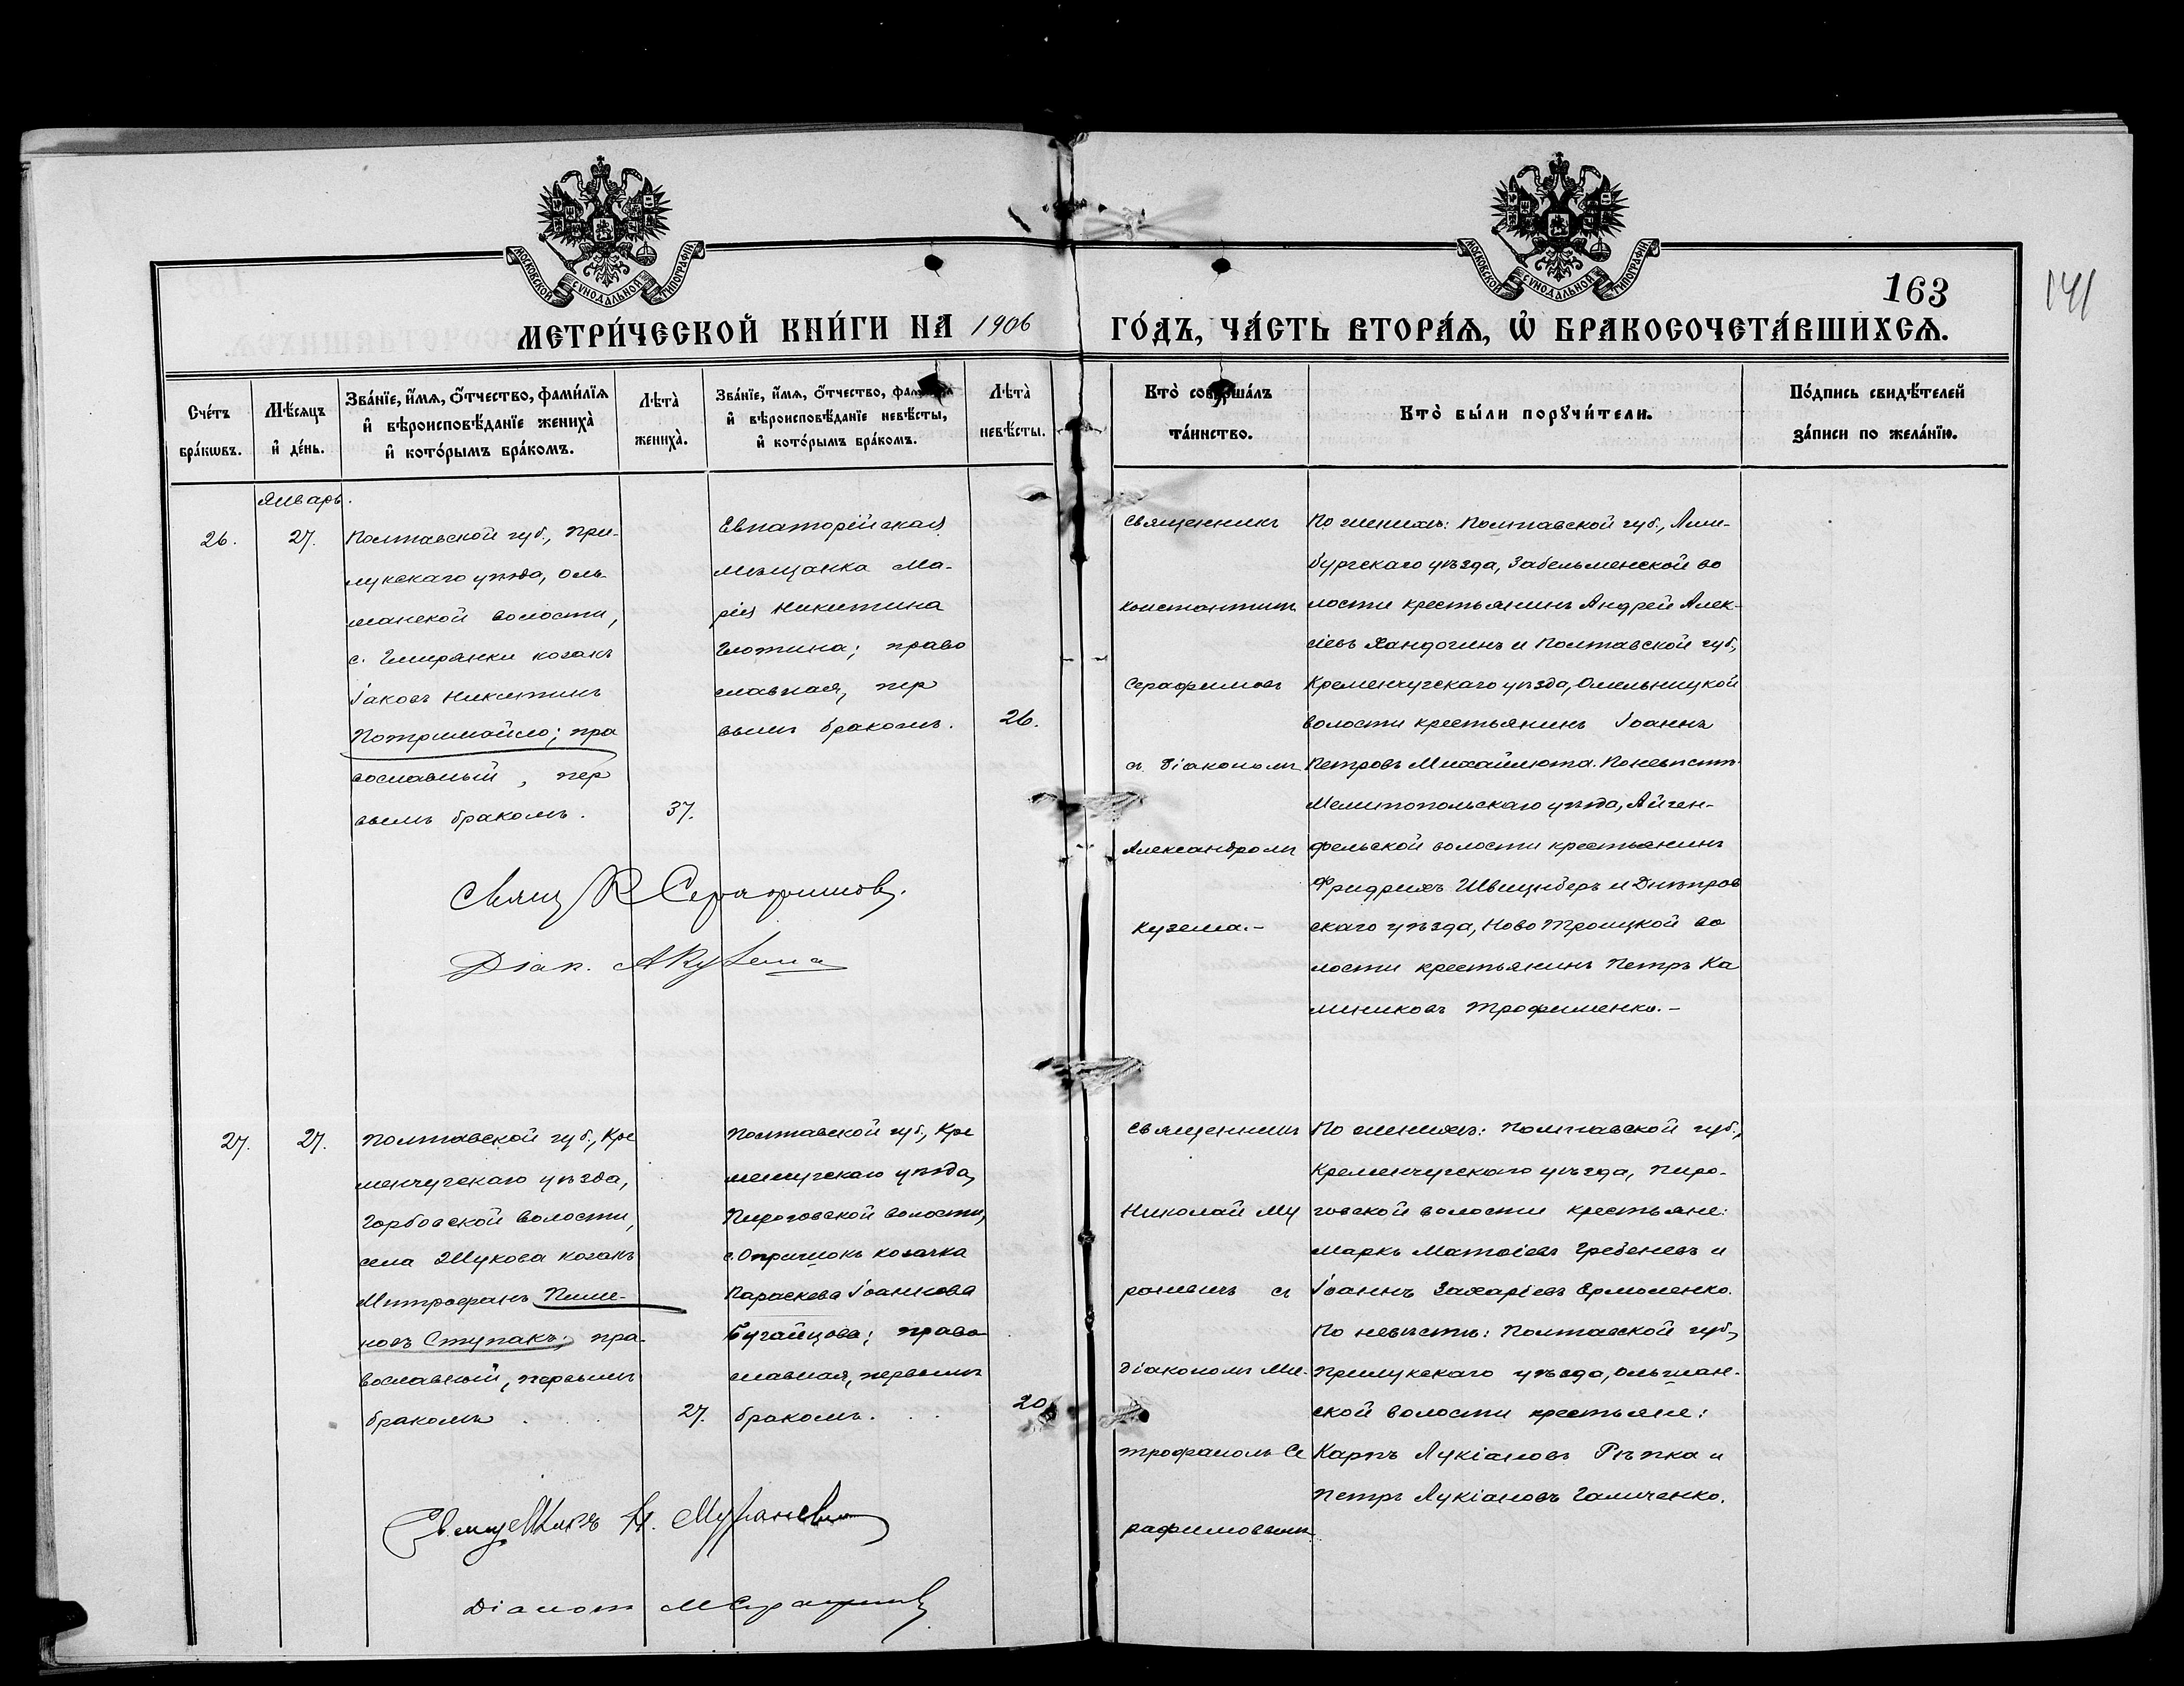 МОСКОВСКОЙ СѴНОДАЛЬНОЙ ТИПОГРАФІИ
МОСКОВСКОЙ СѴНОДАЛЬНОЙ ТИПОГРАФІИ
163
141
МЕТРИ́ЧЕСКОЙ КНИ́ГИ НА 1906 ГО́ДЪ, ЧА́СТЬ ВТОРА́Ѧ, Ѡ҆ БРАКОСОЧЕТА́ВШИХСѦ.
Сче́тъ
бра́кѡвъ.
Мѣ́сѧцъ
и҆ де́нь.
Зва́нїе, и҆́мѧ, ѻ҆́тчество, фами́лїѧ
и҆ вѣроисповѣ́данїе жениха̀
и҆ кото́рымъ бра́комъ.
Лѣ́та̀
жениха̀.
Зва́нїе, и҆́мѧ, ѻ҆́тчество, фами́лїѧ
и҆ вѣроисповѣ́данїе невѣ́сты,
и҆ кото́рымъ бра́комъ.
Лѣ́та̀
невѣ́сты.
Кто̀ соверша́лъ
та́инство.
Кто̀ бы́ли порꙋчи́тели.
По́дпись свидѣ́телей
за́писи по жела́нїю.
Январь.
26.
27.
Полтавской губ., При-
лукскаго уѣзда, Оль-
шанской волости,
с. Гмирянки козакъ
Іаковъ Никитинъ
Потримайло; пра
вославный, пер
вымъ бракомъ.
37.
Евпаторійская
мѣщанка Ма-
рія Никитина
право
славная, пер
вымъ бракомъ.
26.
Священникъ
Константинъ
Серафимовъ
съ діакономъ
Александромъ
Кузема.-
По женихѣ: Полтавской губ.,
уѣзда, во
лости крестьянинъ Андрей Алек-
сіевъ Хандогинъ и Полтавской губ.,
Кременчугскаго уѣзда, Омельницкой
волости крестьянинъ Іоаннъ
Петровъ Михайлюта. По невѣстѣ
Мелитопольскаго уѣзда, Айген-
фельской волости крестьянинъ
Фридрихъ и Днѣпров
скаго уѣзда, Ново Троицкой во
лости крестьянинъ Петръ Ка
линиковъ Трофименко.-
Свящ К Серафимовъ.
Діак. А Кузема
27.
27.
Полтавской губ., Кре
менчугскаго уѣзда,
Горбовской волости,
села Жукова козакъ
Митрофанъ Пиме-
новъ Ступакъ; пра-
вославный, первымъ
бракомъ
27.
Полтавской губ., Кре
менчугскаго уѣзда,
Пироговской волости,
с. Опришокъ козачка
Параскева Іоаннова
Бугайцова; право
славная, первымъ
бракомъ.
20
Священникъ
Николай Му
раневичъ съ
діакономъ Ми-
трофаномъ Се
рафимовымъ
По женихѣ: Полтавской губ.,
Кременчугскаго уѣзда, Пиро-
говской волости крестьяне:
Маркъ Матѳіевъ Гребеневъ и
Іоаннъ Захаріевъ Ермоленко.
По невѣстѣ: Полтавской губ.,
Прилукскаго уѣзда, Ольшан-
ской волости крестьяне:
Карпъ Лукіановъ Рѣпка и
Петръ Лукіановъ Галиченко.
Священникъ Н. Мураневичъ
Діаконъ М Серафимовъ